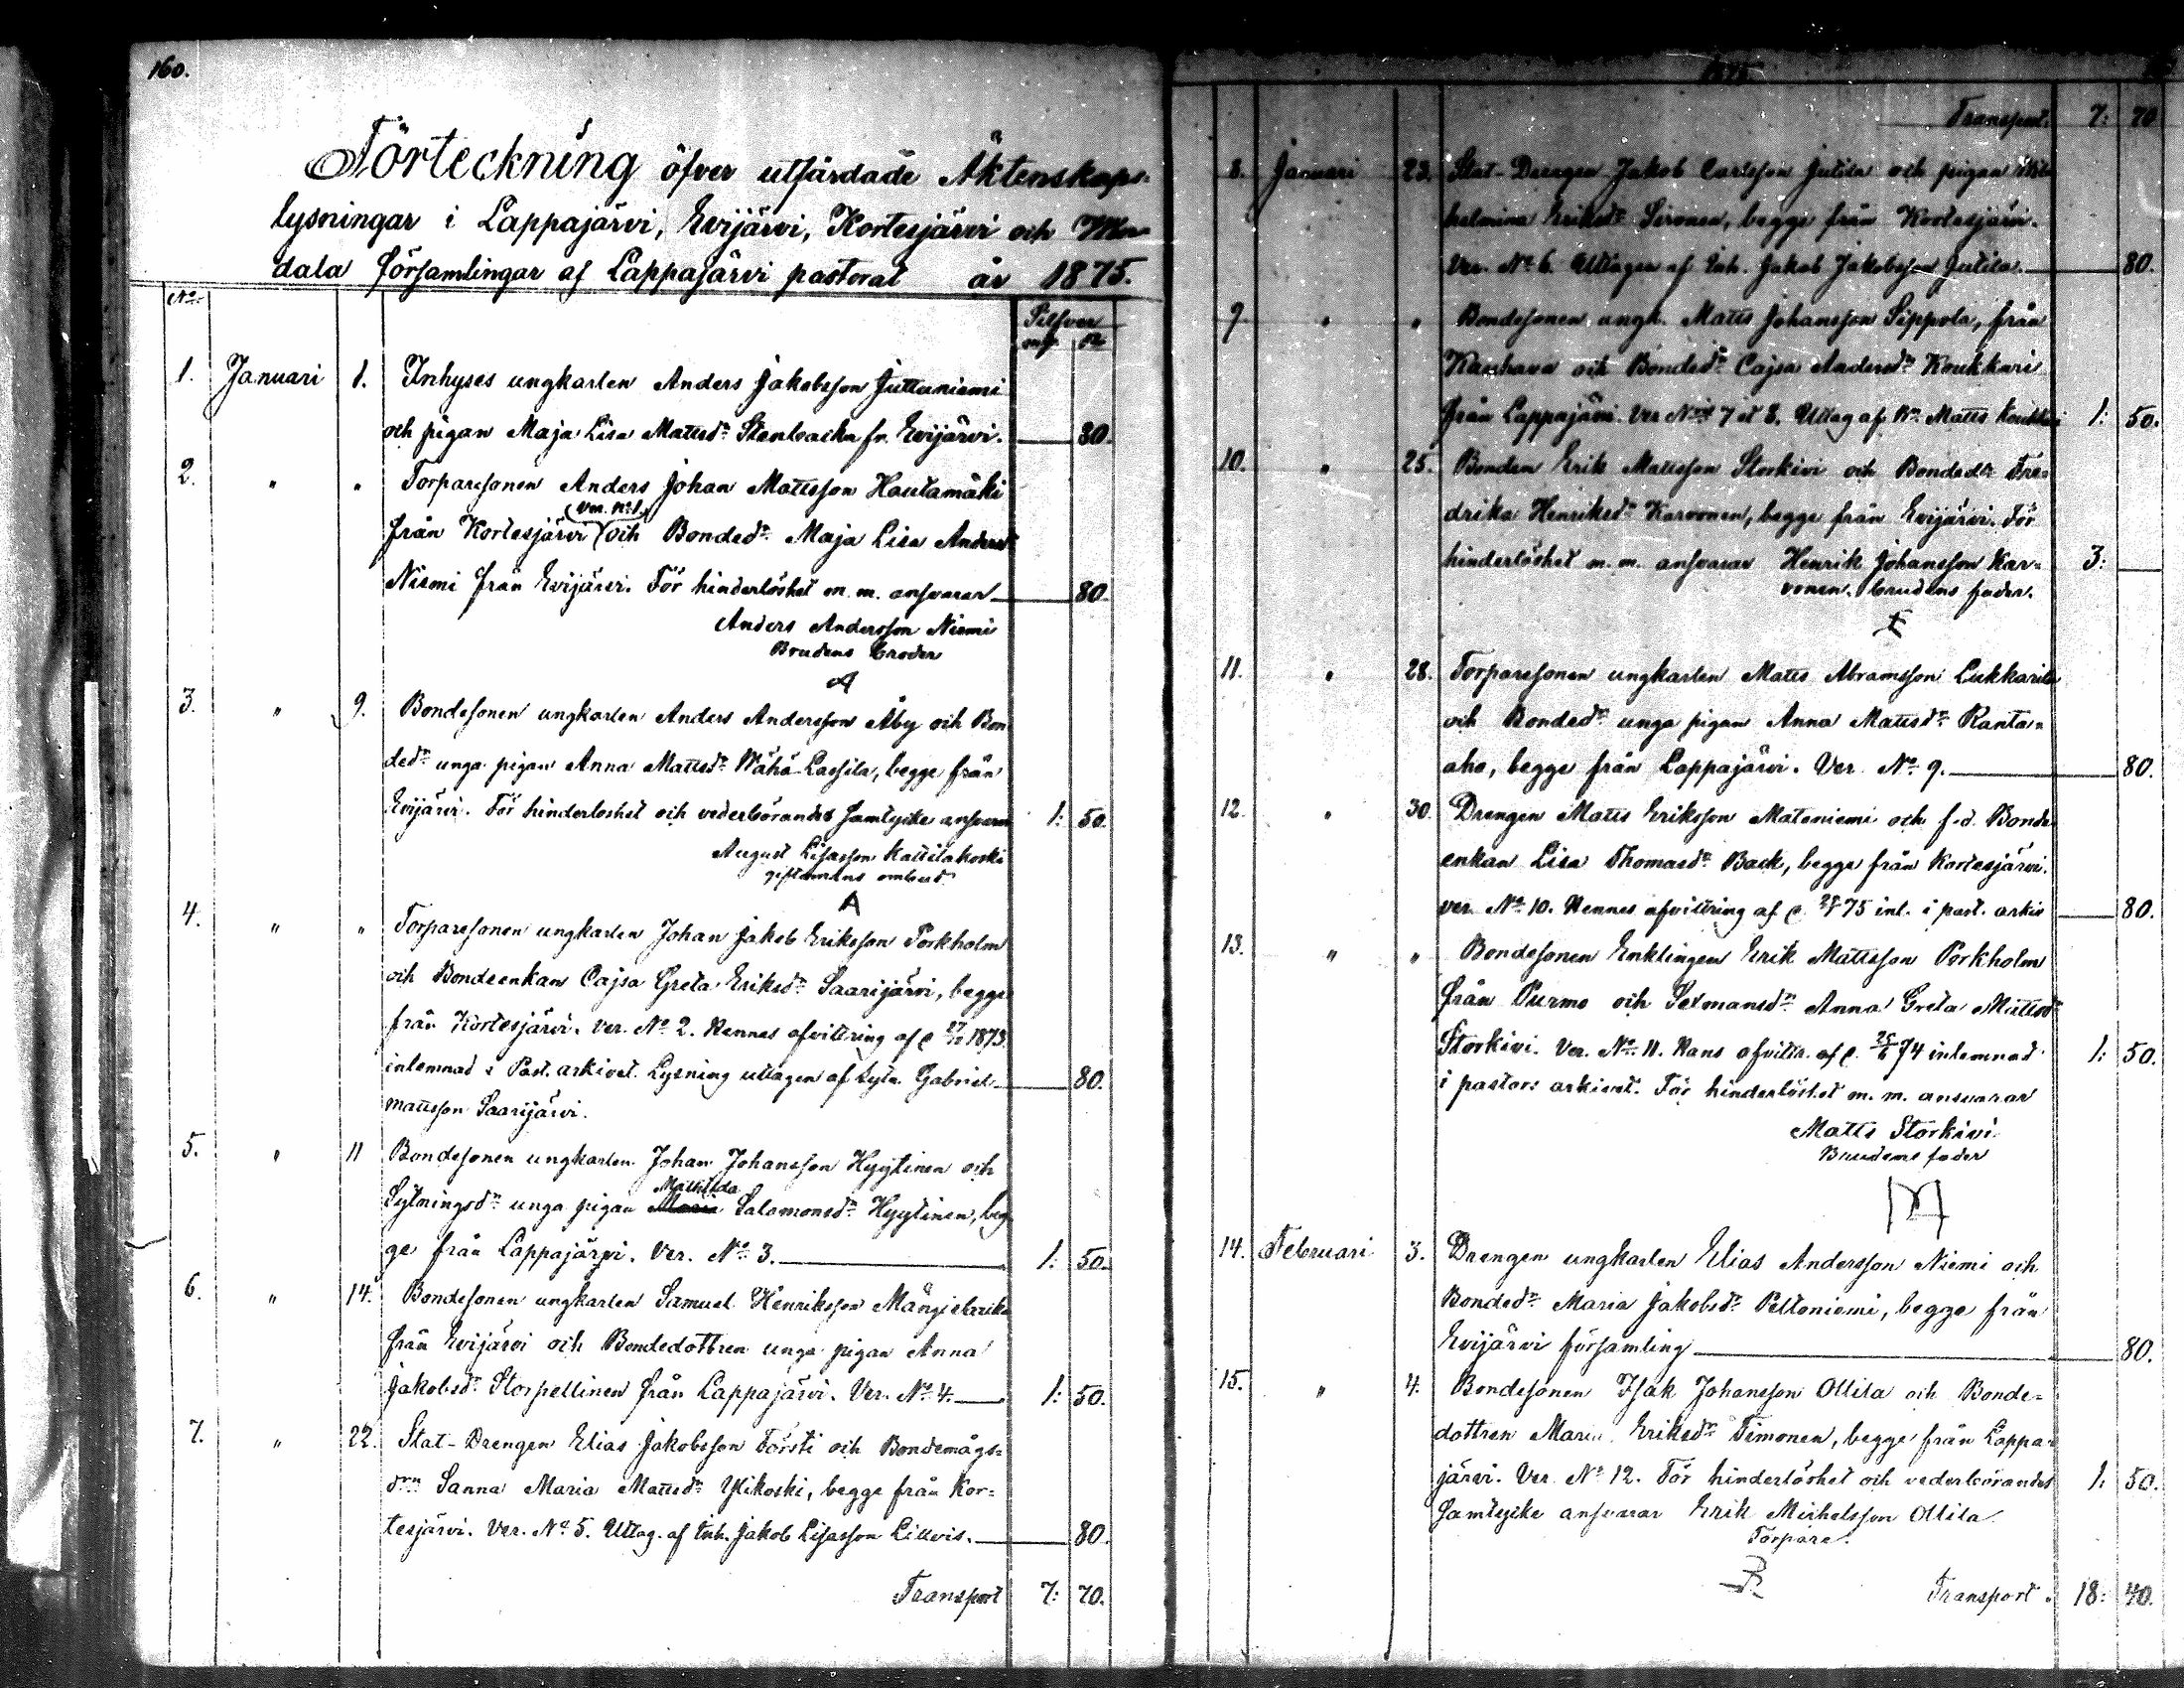 160.
Förteckning öfver utfärdade Äktenskaps-
lysningar i Lappajärvi, Evijärvi, Kortesjärvi och
dala församlingar af Lappajärvi pastorat år 1875.
No.
Silfver
1. Januari 1. Inhyses ungkarlen Anders Jakobsson Juttuniemi
och pigan Maja Lisa Mattsdr Stenbacka fr. Evijärvi. 80.
2. " " Torparesonen Anders Johan Mattsson Hautamäki
Ver. No 1.
från Kortesjärvi och Bondedr Maja Lisa Andersdr
Niemi från Evijärvi. För hinderlöshet m. m. ansvarar 80.
Anders Andersson Niemi
Brudens broder
A
3. " 9. Bondesonen ungkarlen Anders Andersson Åby och Bon
dedr unga pigan Anna Mattsdr Wähä-Lassila, begge från
Evijärvi. För hinderloshet och vederbörandes samtycke ansvarar 1: 50.
August Kattilakoski
giftomans ombud
A
4. " " Torparesonen ungkarlen Johan Jakob Eriksson Porkholm
och Bondeenkan Cajsa Greta Eriksdr Saarijärvi, begge
från Kortesjärvi. Ver. No 2. Hennes afvittring af 1873.
inlemnad i Past. arkivet. Lysning uttagen af Sytn. Gabriel 80.
Mattsson Saarijärvi.
5. " 11 Bondesonen ungkarlen Johan Johansson Hyytinen och
Mathilda
Sytningsdr unga pigan Maria Salomonsdr Hyytinen, beg
ge från Lappajärvi. Ver. No 3. 1: 50.
6. " 14. Bondesonen ungkarlen Samuel Henriksson
från Evijärvi och Bondedottren unga pigan Anna
Jakobsdr Storpellinen från Lappajärvi. Ver. No 4. 1: 50.
7. " 22. Stat-Drengen Elias Jakobsson Försti och Bondemågs-
drn Sanna Maria Mattsdr Ylikoski, begge från Kor=
tesjärvi. Ver. No 5. Uttag. af Inh. Jakob Lillvis. 80.
Transport 7: 70.
1875
Transport. 7: 70
8. Januari 23. Stat-Drengen Jakob Carlsson Jutila och pigan Wil
helmina Eriksdr Sironen, begge från Kortesjärvi.
Ver. No 6. Uttagen af Inh. Jakob Jakobsson Jutila. 80.
9 " " Bondesonen ungk. Matts Johansson Sippola, från
Kauhava och Bondedr Cajsa Andersdr Koukkari
från Lappajärvi. Ver No 7 et 8. Uttag af Matts Koukkari 1: 50.
10. " 25. Bonden Erik Mattsson Storkivi och Bondedtr Fre=
drika Henriksdr Karvonen, begge från Evijärvi. För
hinderlöshet m. m. ansvarar Henrik Johansson Kar= 3:
vonen. brudens fader.
11. " 28. Torparesonen ungkarlen Matts Abramsson Lukkarila
och Bondedr unga pigan Anna Mattsdr Ranta=
aho, begge från Lappajärvi. Ver. No 9. 80.
12. " 30. Drengen Matts Eriksson Mateniemi och f.d. Bonde
enkan Lisa Thomasdr Back, begge från Kortesjärvi.
ver. No 10. Hennes afvittring af 75 inl. i past. arkiv 80.
13. " " Bondesonen Enklingen Erik Mattsson Porkholm
från Purmo och Sexmansdr Anna Greta Mattsdr
Storkivi. Ver. No 11. Hans afvittr. af 25/6 74 inlemnad 1: 50.
i pastor: arkivet. För hinderlöshet m. m. ansvarar
Matts Storkivi
Brudens fader
14. Februari 3. Drengen ungkarlen Elias Andersson Niemi och
Bondedr Maria Jakobsdr Peltoniemi, begge från
Evijärvi församling 80.
15. " 4. Bondesonen Isak Johansson Ollila och Bonde=
dottren Maria Eriksdr Timonen, begge från Lappa=
järvi. Ver No 12. För hinderlöshet och vederbörandes 1: 50.
samtycke ansvarar Erik Michelsson Ollila
Torpare.
Transport. 18: 40.